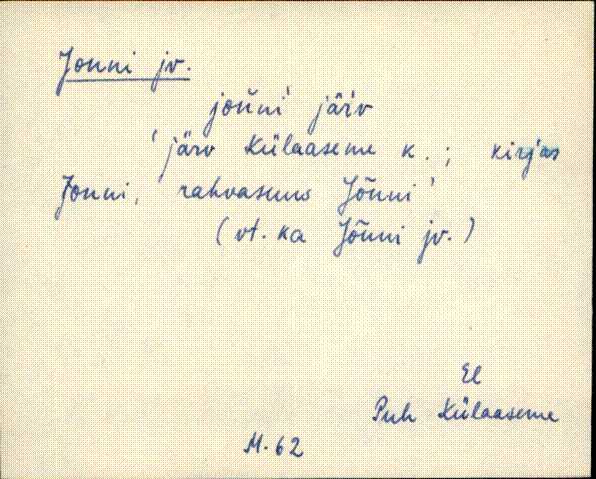 Jonni jv.
joǹni järv
'järv Külaaseme k.; kirjas
Jonni, rahvasuus Jõnni'
(vt. ka Jõnni jv.)
El
Puh Külaaseme
M. 62